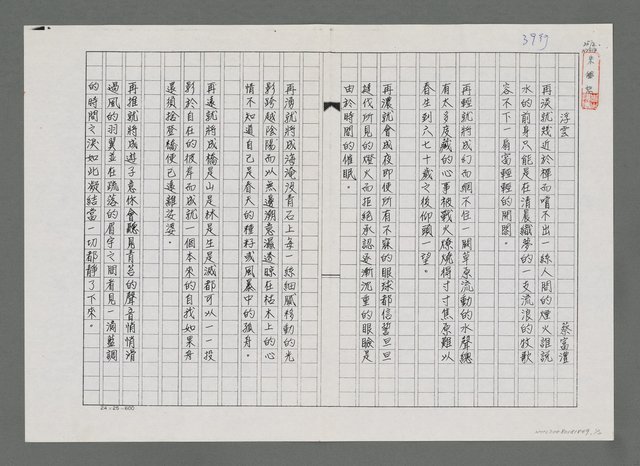 39行
浮雲
蔡富澧
再淡就踐近於禪而嚐不出一絲人間的煙火誰說
水的前身只能是在清晨織夢的一支流浪的牧歌
容不下一扇窗輕輕的開闔。
再輕就將成幻而網不住一闋草原流動的水聲總
有太多度藏的心事被戰火燎燒得寸寸焦原難以
春生到六七十歲之後仰頭一望。
再濃就會成夜即便所有不寐的眼球都信誓旦旦
雖伐所見的燈火而拒絕承認逐漸沉重的眼瞼是
由於時間的催眠。
再湧就將成海淹沒青石上每一絲細膩移動的光
影跨越陰陽而以無邊潮意濕透晾在枯木上的心
情不知道自己是春天的種籽或風暴中的孤舟。
再遠就將成橋是山是林是生是滅都可以一一投
影於自在的彼岸而成就一個本來的自我如果舟
還須捨登橋便已遠離苦婆。
再推就將成遊子意你會聽見青苔的聲音悄悄滑
過風的羽翼並在疏落的眉宇之間看見一滴藍調
的時間之淚如此凝結當一切都靜了下來。
24×25=600